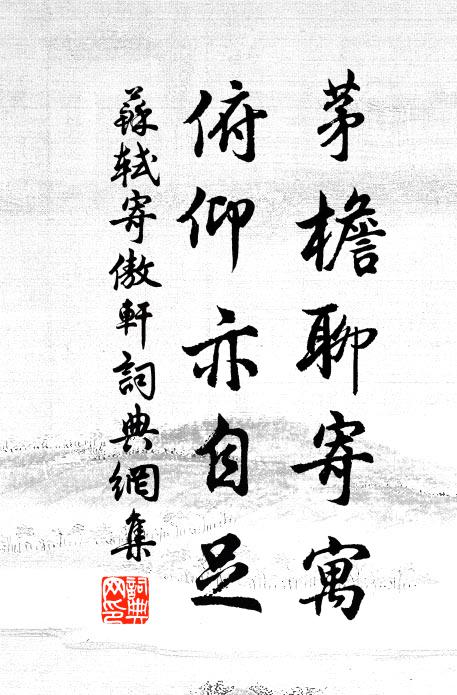 茅檐聊寄寓
俯仰亦自足
蘇軾寄傲軒詞典網集
詞典网印